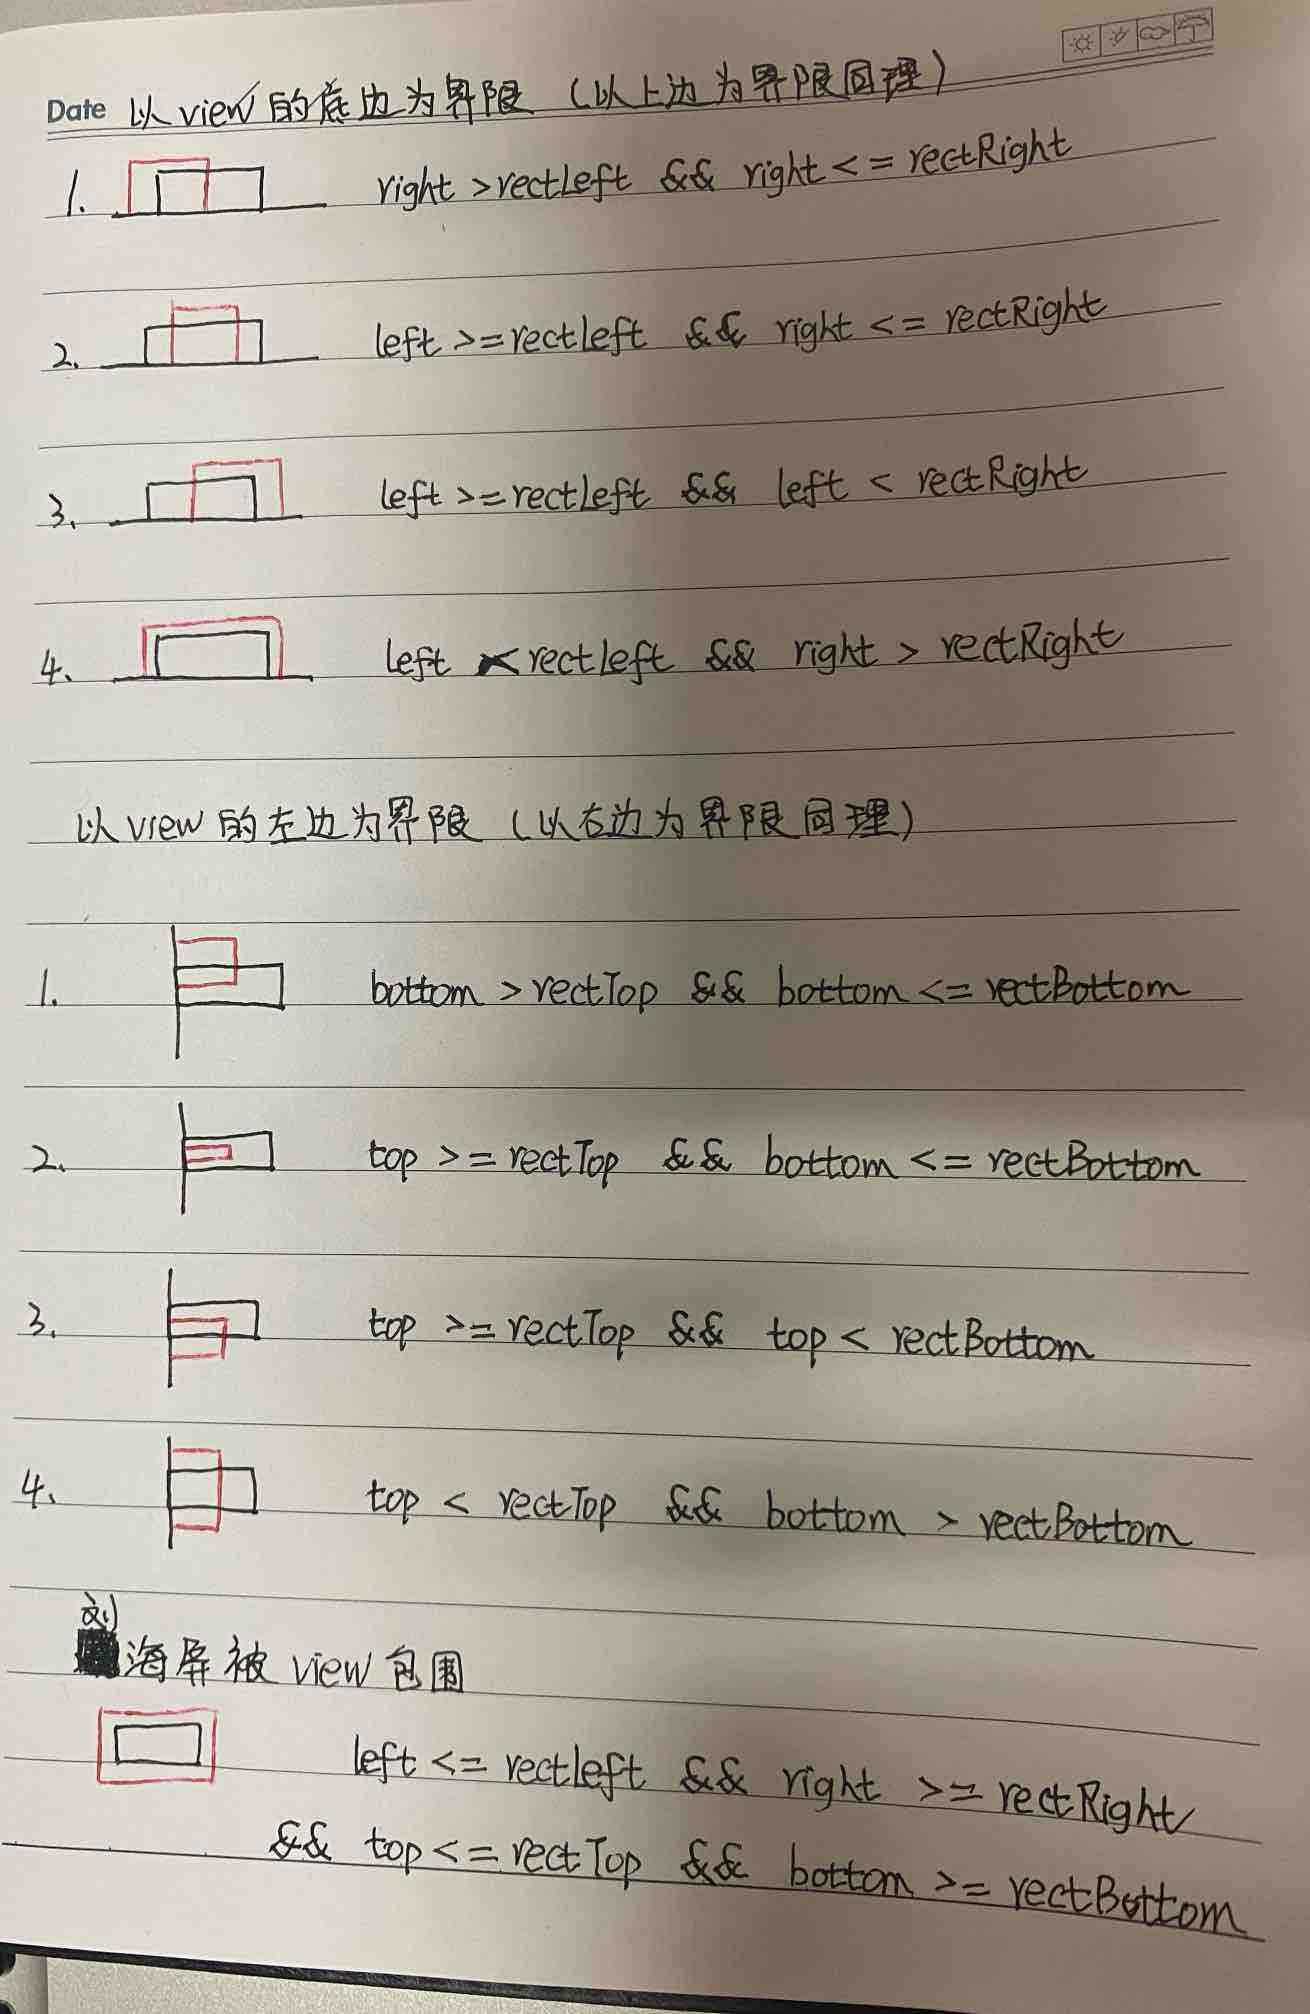 Date 以view的底边为界限（以上边为界限同理）
1. right >rectLeft && right <= rectRight
2. left >=rectleft && right <= rectRight
3. left >=rectLeft && left < rectRight
4. left < rectleft && right > rectRight
以view的左边为界限（以右边为界限同理）
1. bottom > rectTop && bottom <= rectBottom
2. top >= rectTop && bottom <= rectBottom
3. top >= rectTop && top < rectBottom
4. top < rectTop && bottom > rectBottom
刘海屏被view包围
left <= rectleft && right >= rectRight
&& top <= rectTop && bottom >= rectBottom